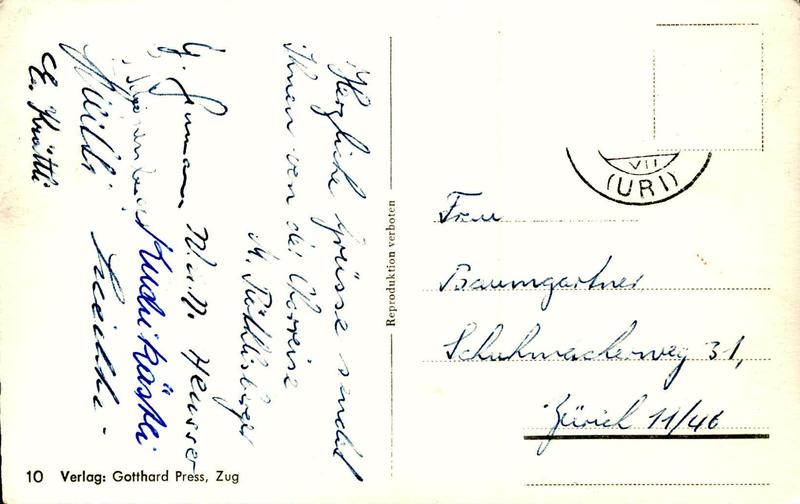 Herzliche Grüsse sendet
Ihnen von der Chorreise
M. Röthlisberger
W. u. N. Heusser
Ruchi Käslei
E. Krättli
Reproduktion verboten
VII
(URI)
Frau
Baumgartner
Schuhmacherweg 31,
Zürich 11/46
10 Verlag: Gotthard Press, Zug